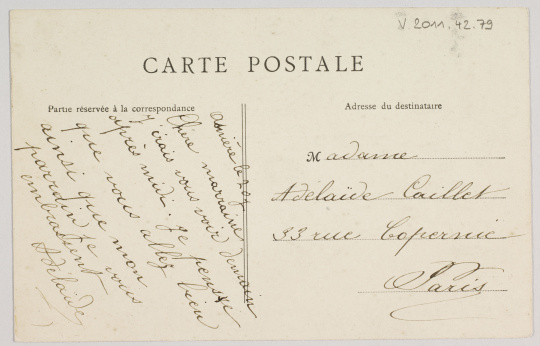 V. 2011.42.79
CARTE POSTALE
Partie réservée à la correspondance
Adresse du destinataire
Chère marraine
J'irais vous voir demain
après midi. Je pense
que vous allez bien
ainsi que mon
parrain Je vous
embrassent
Adelaïde
Madame
Adelaïde Caillet
33 rue Copernic
Paris